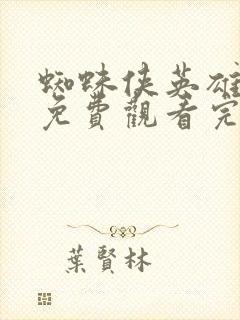 蜘蛛俠英雄
免費觀看完
葉賢林